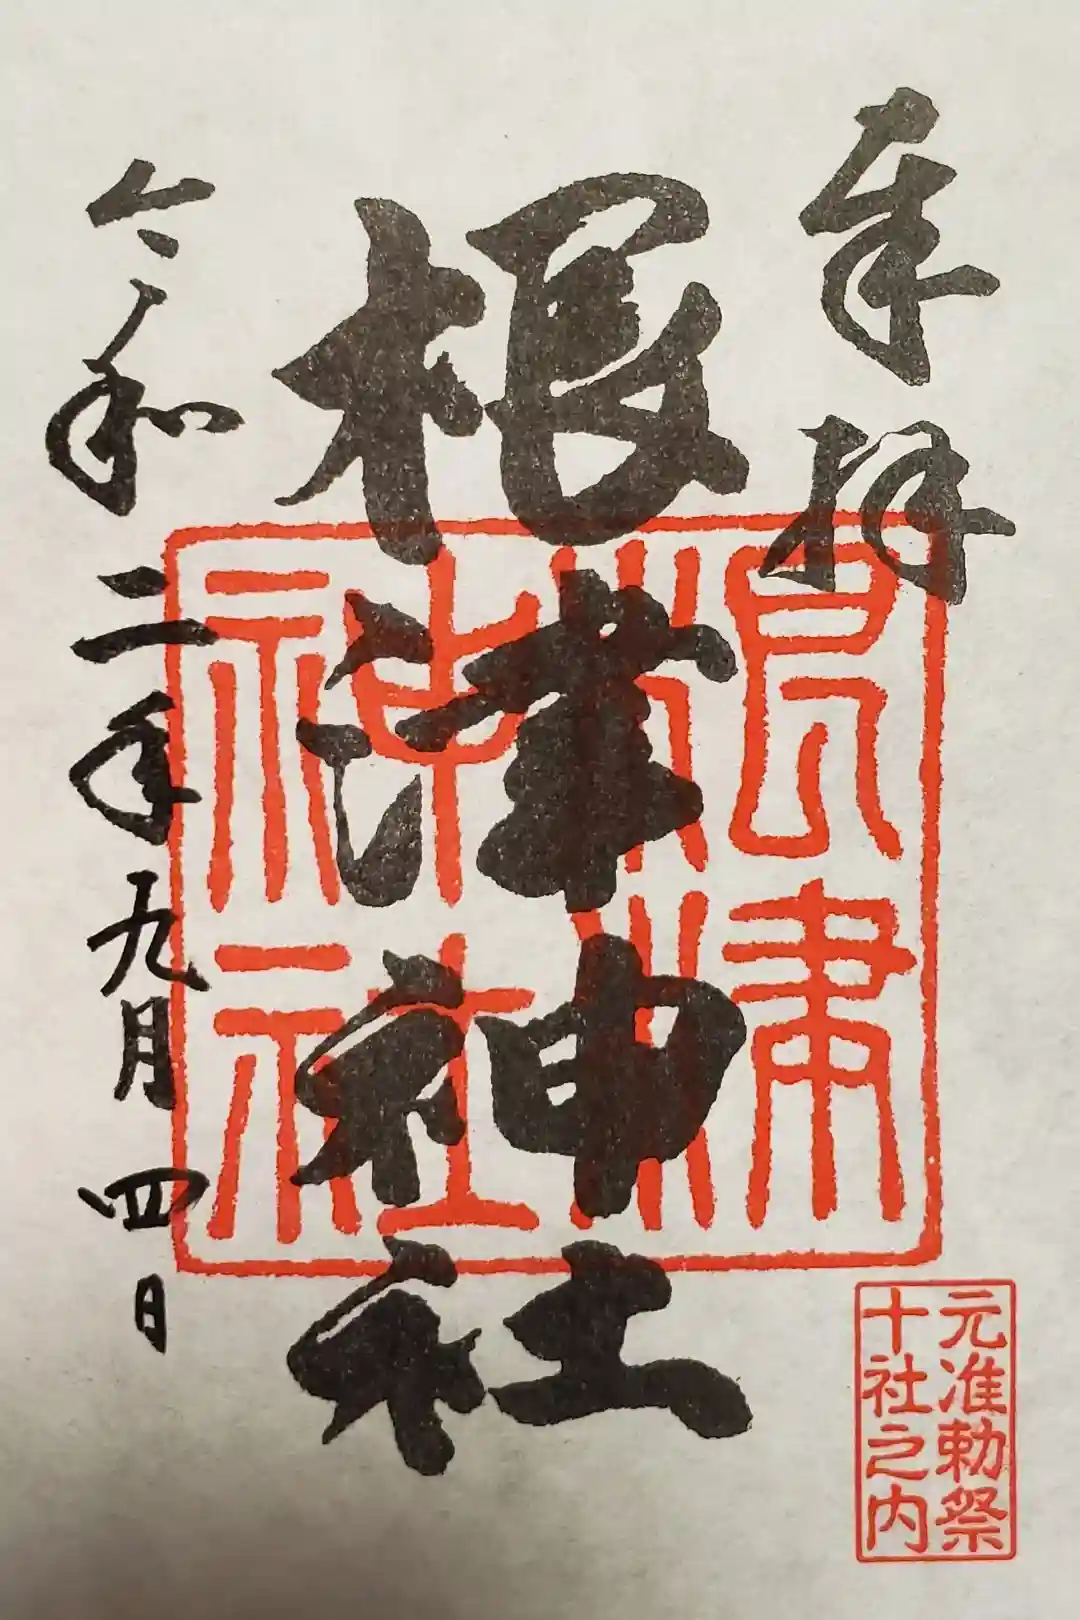 奉拝
根津神社
令和二年九月四日
根津
神社
元准勅祭
十社之内